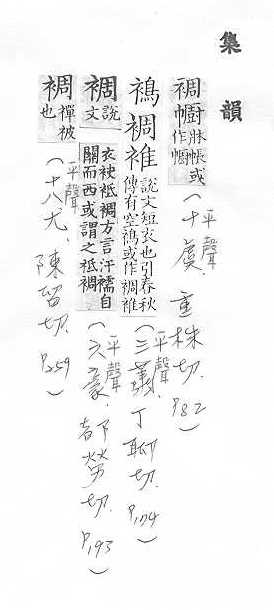 集韻
裯幮牀帳或作
(平聲十虞,重株切. P82)
䙚裯 說文短衣也引春秋傳有空䙚或作裯
(平聲三蕭丁聊切. P174)
裯說文衣袂袛裯方言汗襦自關而西或謂之袛裯
(平聲六豪,都勞切. P193)
裯襌被也
(平聲十八尤,陳留切. P259)